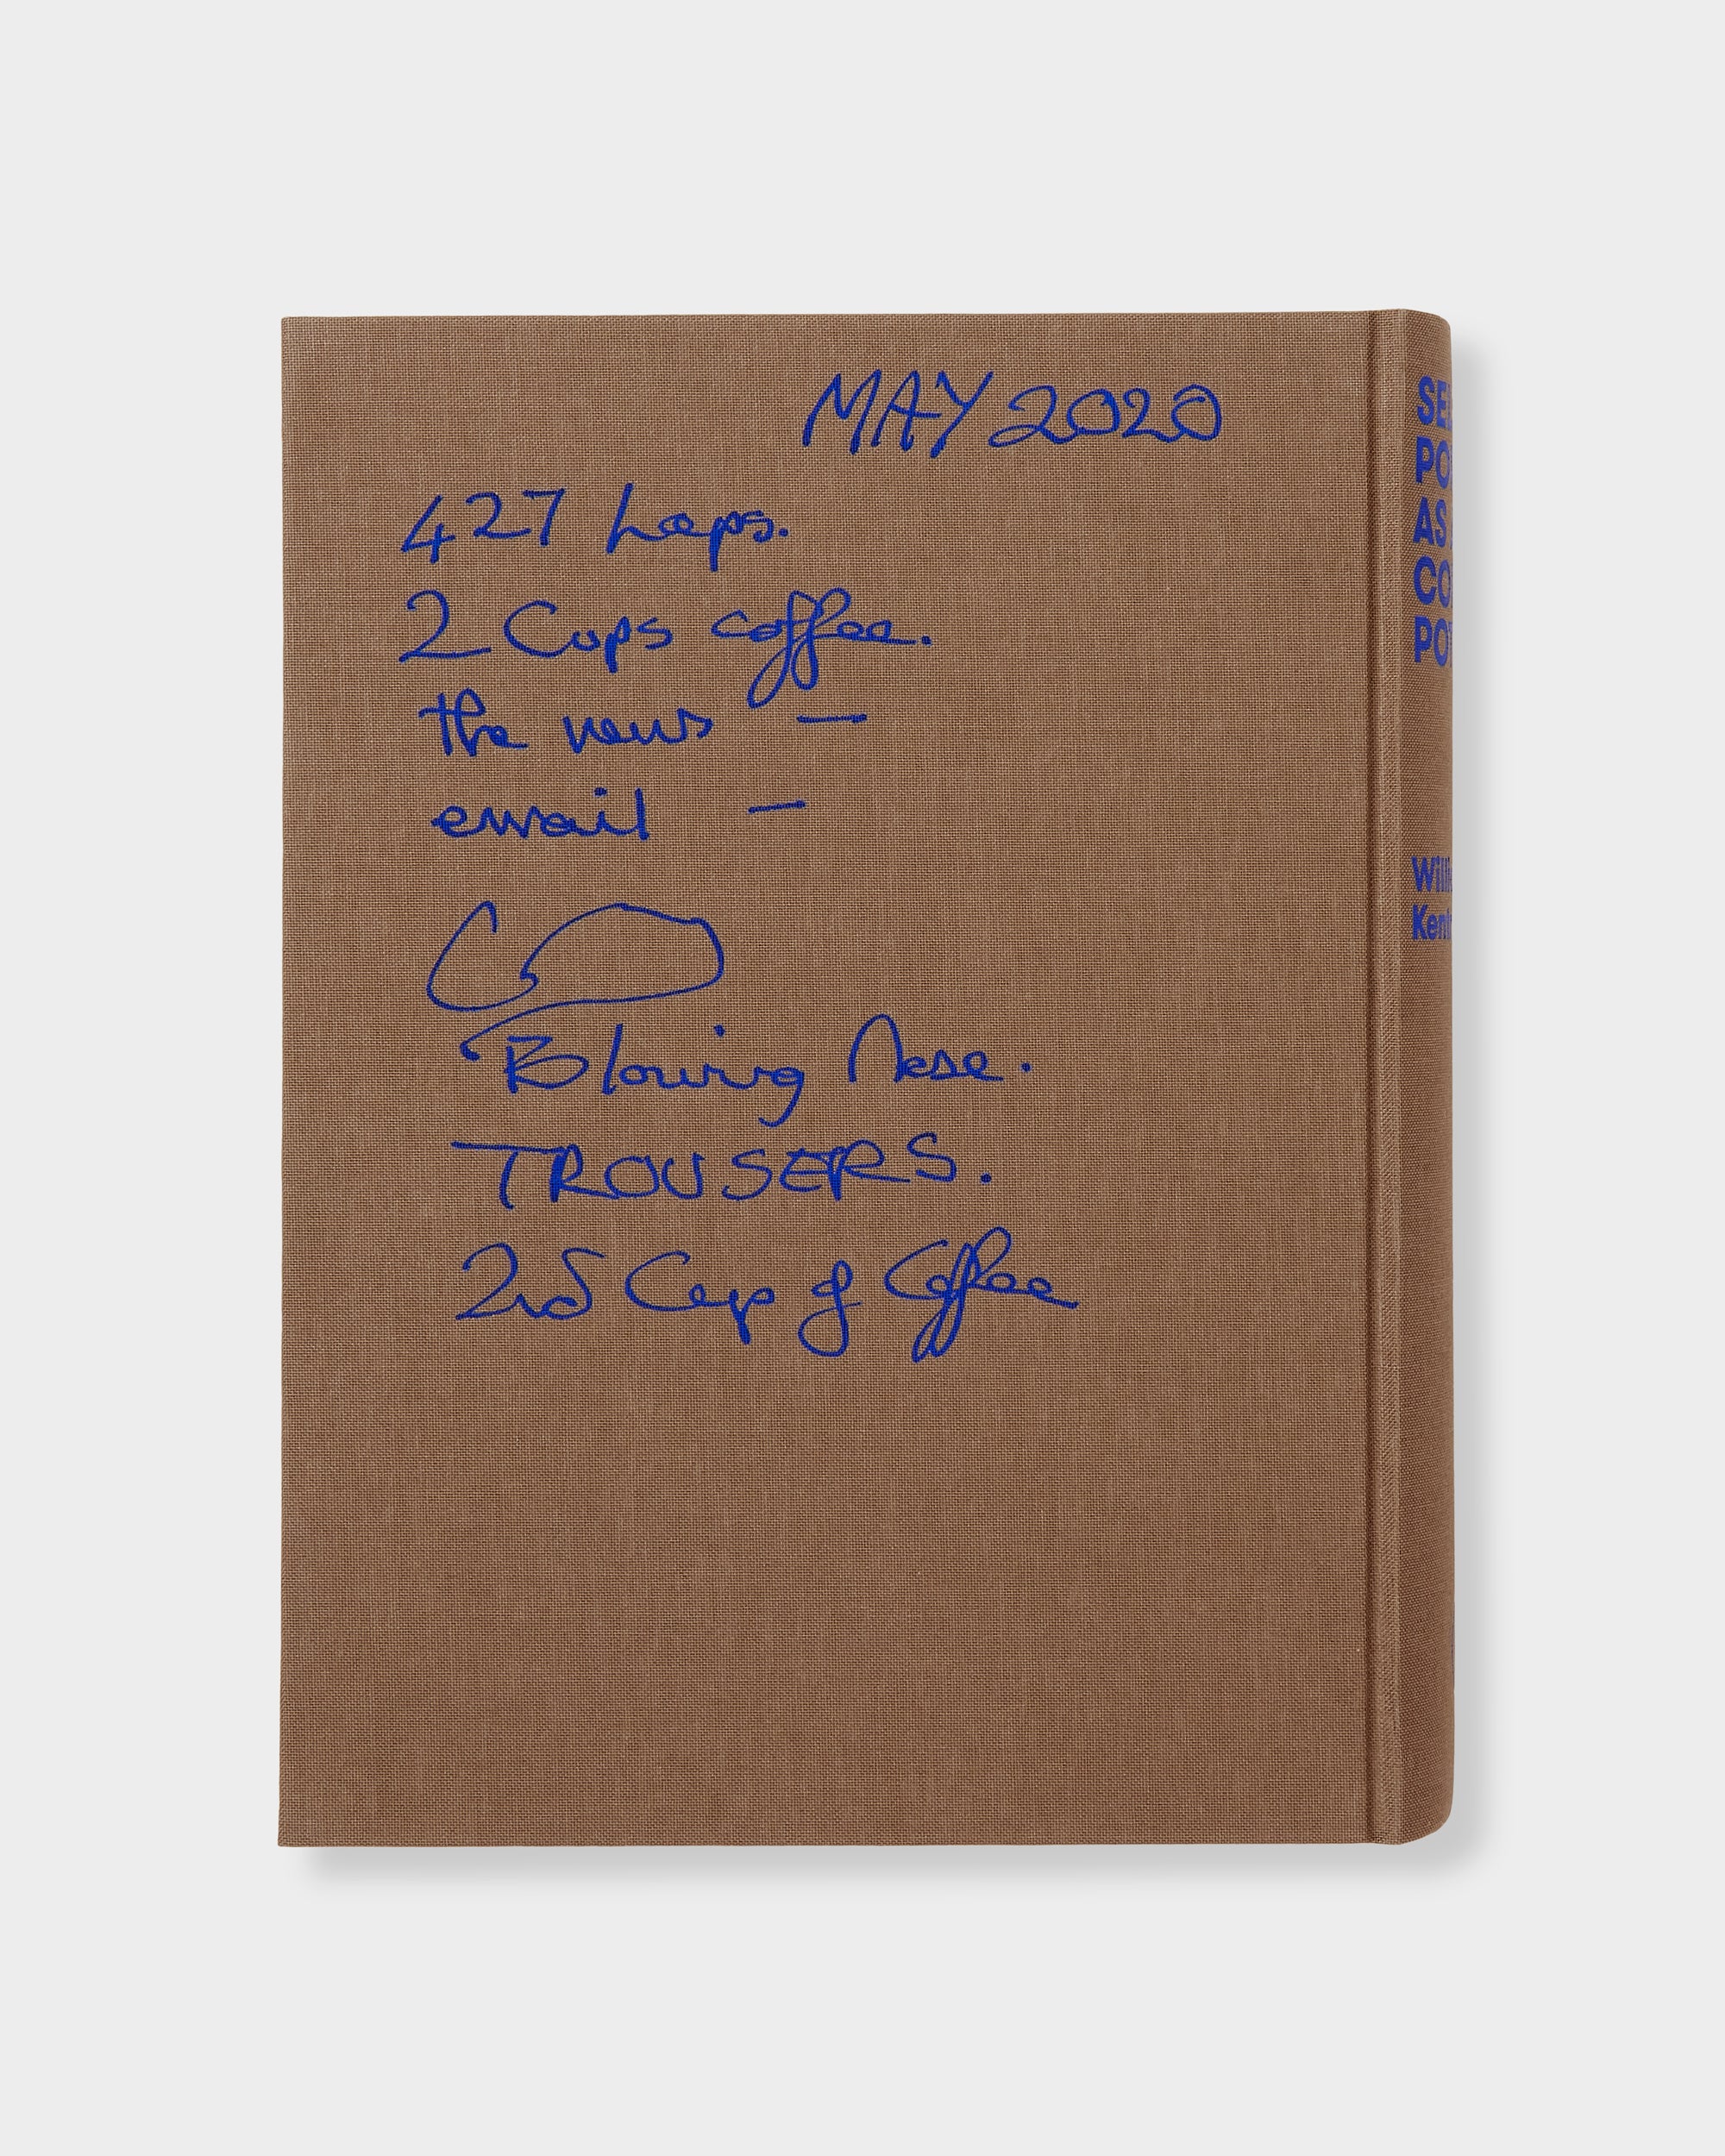 MAY 2020
427 Laps.
2 Cups coffee.
the news —
email —
Blowing Nose.
TROUSERS.
2nd Cup of Coffee
SE
PO
AS
CO
PO
Willi
Kent